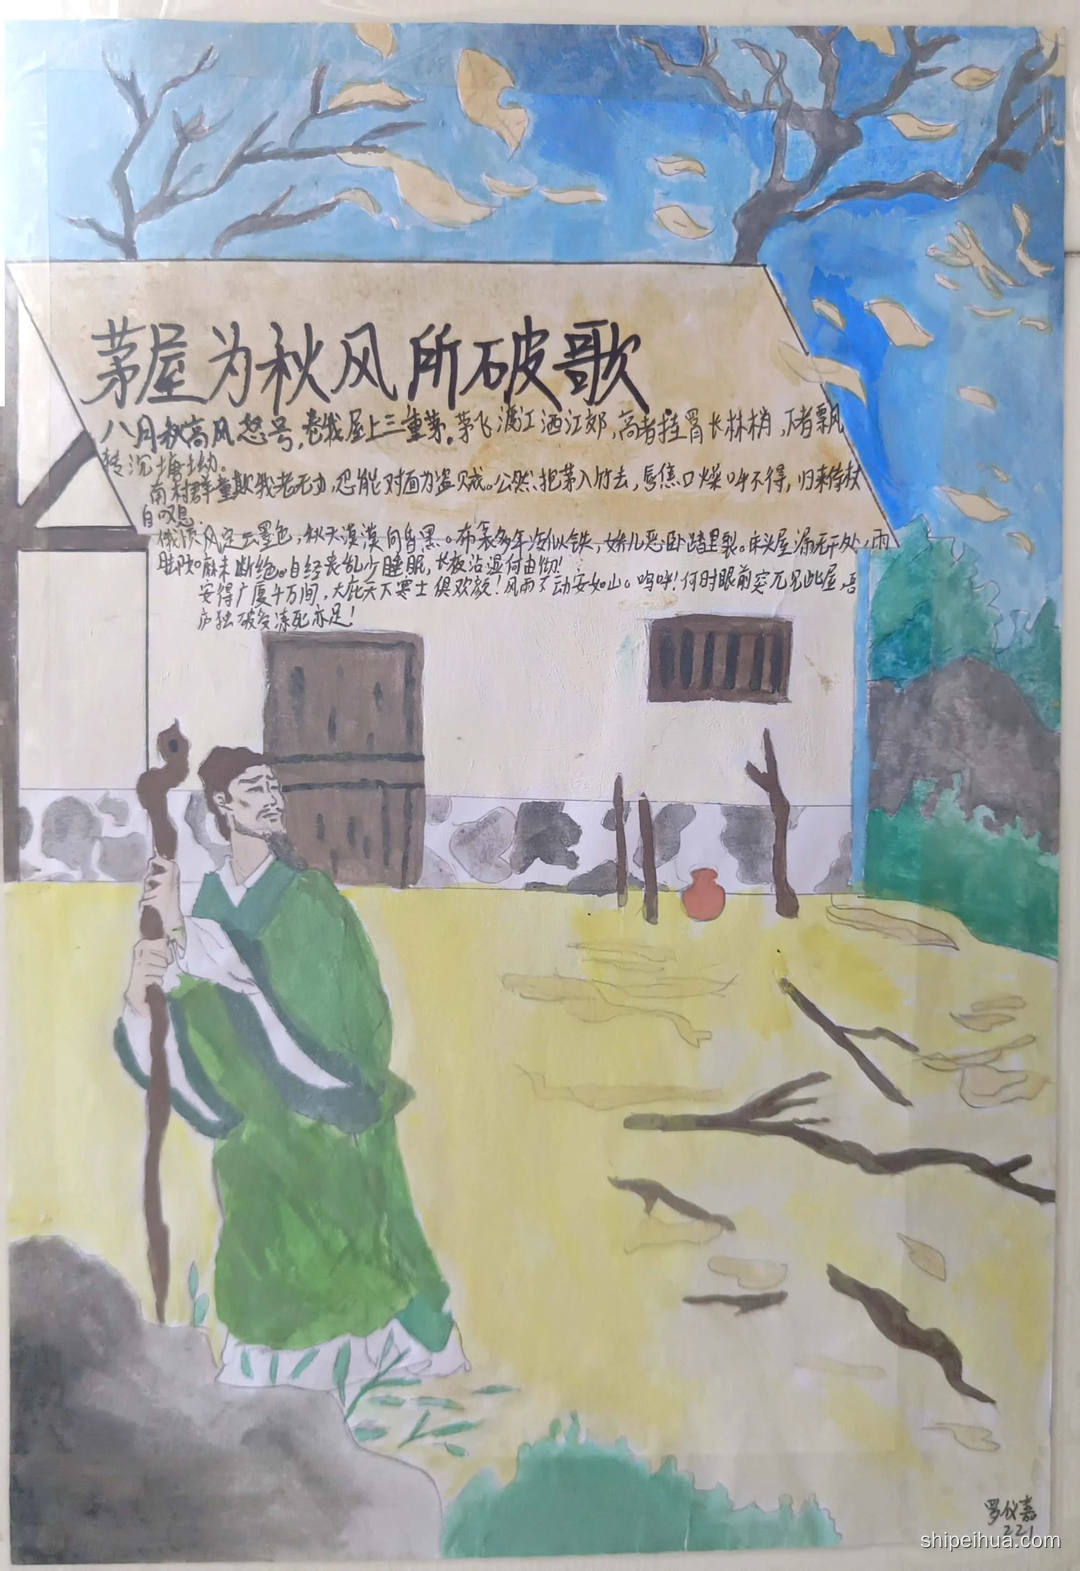 茅屋为秋风所破歌
八月秋高风怒号，卷我屋上三重茅。茅飞渡江洒江郊，高者挂罥长林梢，下者飘
转沉塘坳。
南村群童欺我老无力，忍能对面为盗贼。公然抱茅入竹去，唇焦口燥呼不得，归来倚杖
自叹息。
俄顷风定云墨色，秋天漠漠向昏黑。布衾多年冷似铁，娇儿恶卧踏里裂。床头屋漏无干处，雨
脚如麻未断绝。自经丧乱少睡眠，长夜沾湿何由彻！
安得广厦千万间，大庇天下寒士俱欢颜！风雨不动安如山。呜呼！何时眼前突兀见此屋，吾
庐独破受冻死亦足！
罗仪嘉
221
shipeihua.com